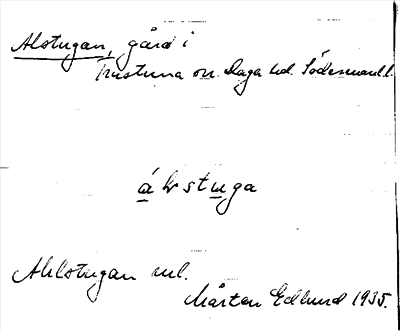 Alstugan, gård i
Frustuna sn. Daga hd. Södermanl.
álstuga
Ahlstugan enl.
Mårten Edlund 1935.